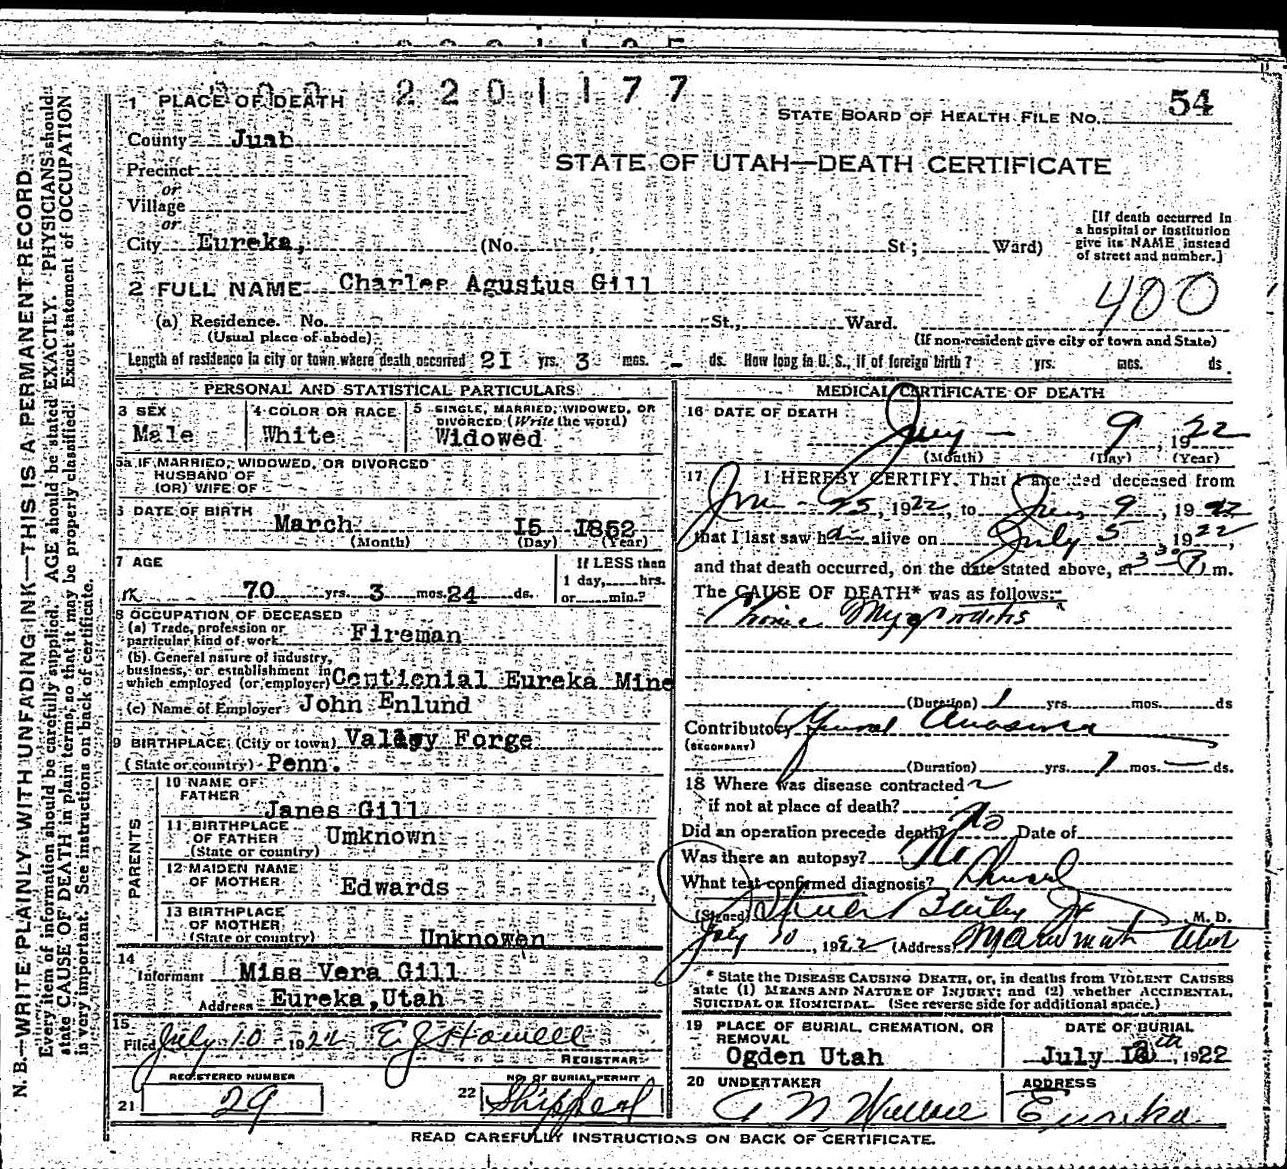 220 1177
54
1 PLACE OF DEATH
STATE BOARD OF HEALTH FILE No.
County Juab
STATE OF UTAH—DEATH CERTIFICATE
Precinct
or
Village
or
City Eureka, (No. , St; Ward)
[If death occurred in
a hospital or institution
give its NAME instead
of street and number.]
2 FULL NAME Charles Agustus Gill
400
(a) Residence. No. St., Ward.
(Usual place of abode)
(If non-resident give city or town and State)
Length of residence in city or town where death occurred 21 yrs. 3 mos. - ds. How long in U. S., if of foreign birth? yrs. mos. ds.
PERSONAL AND STATISTICAL PARTICULARS
3 SEX
Male
4 COLOR OR RACE
White
5 SINGLE, MARRIED, WIDOWED, OR
DIVORCED (Write the word)
Widowed
5a IF MARRIED, WIDOWED, OR DIVORCED
HUSBAND OF
(OR) WIFE OF
6 DATE OF BIRTH
March 15 1852
(Month) (Day) (Year)
7 AGE
70 yrs. 3 mos. 24 ds.
If LESS than
1 day, hrs.
or min.?
8 OCCUPATION OF DECEASED
(a) Trade, profession or
particular kind of work Fireman
(b) General nature of industry,
business, or establishment in
which employed (or employer) Centienial Eureka Mine
(c) Name of Employer John Enlund
9 BIRTHPLACE (City or town) Valley Forge
(State or country) Penn.
PARENTS
10 NAME OF
FATHER
Janes Gill
11 BIRTHPLACE
OF FATHER
(State or country) Umknown
12 MAIDEN NAME
OF MOTHER Edwards
13 BIRTHPLACE
OF MOTHER
(State or country) Unknowen
14
Informant Miss Vera Gill
Address Eureka, Utah
15
Filed July 10 1922 E J Howell
REGISTRAR
REGISTERED NUMBER
21 29
NO. OF BURIAL PERMIT
22 Shipped
MEDICAL CERTIFICATE OF DEATH
16 DATE OF DEATH
July 9, 1922
(Month) (Day) (Year)
17 I HEREBY CERTIFY, That I attended deceased from
25, 1922, to 9, 1922
that I last saw h alive on July 5, 1922,
and that death occurred, on the date stated above, at 3 30 P. m.
The CAUSE OF DEATH* was as follows:
Chronic Myocarditis
(Duration) 1 yrs. mos. ds
Contributory General Anasarca
(SECONDARY)
(Duration) yrs. 1 mos. — ds.
18 Where was disease contracted
if not at place of death?
Did an operation precede death? No Date of
Was there an autopsy? No
What test confirmed diagnosis?
(Signed) Bailey Jr M. D.
July 10, 1922 (Address) Mammoth Utah
* State the DISEASE CAUSING DEATH, or, in deaths from VIOLENT CAUSES
state (1) MEANS AND NATURE OF INJURY; and (2) whether ACCIDENTAL,
SUICIDAL OR HOMICIDAL. (See reverse side for additional space.)
19 PLACE OF BURIAL, CREMATION, OR
REMOVAL
Ogden Utah
DATE OF BURIAL
July 12th, 1922
20 UNDERTAKER
A N Wallace
ADDRESS
Eureka
READ CAREFULLY INSTRUCTIONS ON BACK OF CERTIFICATE.
N. B.—WRITE PLAINLY WITH UNFADING INK—THIS IS A PERMANENT RECORD.
Every item of information should be carefully supplied. AGE should be stated EXACTLY. PHYSICIANS should
state CAUSE OF DEATH in plain terms, so that it may be properly classified. Exact statement of OCCUPATION
is very important. See instructions on back of certificate.